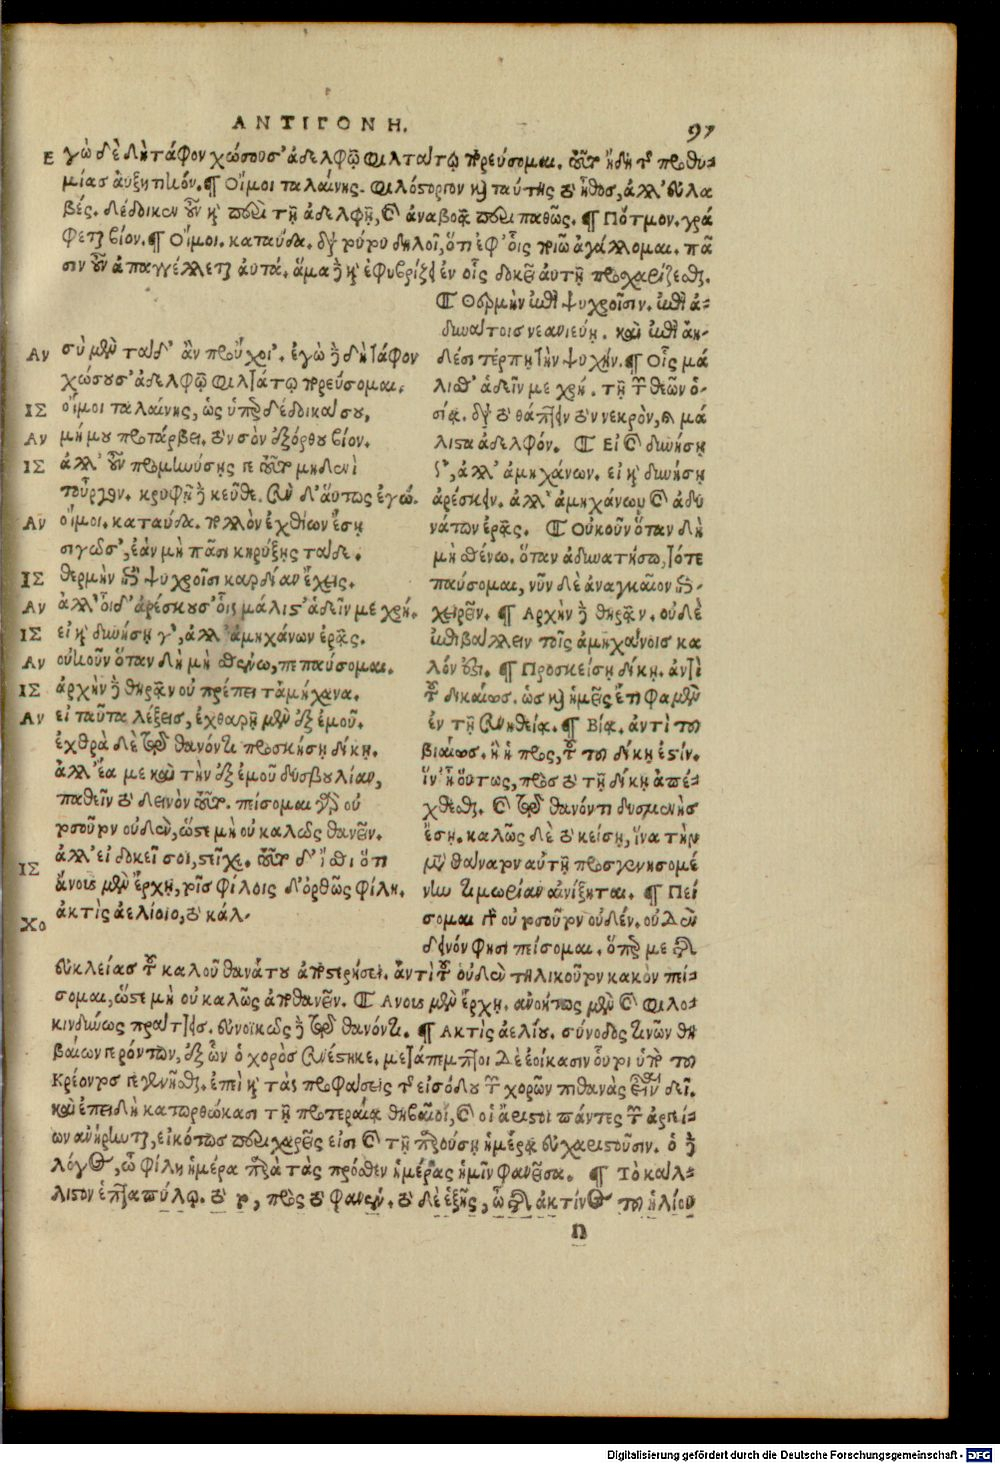 ΑΝΤΙΓΟΝΗ. 97
Εγὼ δὲ δὴ τάφον χώσουσ' ἀδελφῷ φιλτάτῳ πορεύσομαι. τοῦτο ἤδη τῆς προθυ-
μίας αὐξητικόν. ¶ Οἴμοι ταλαίνης. φιλόστοργον καὶ ταύτης τὸ ἦθος, ἀλλ' εὐλα
βές. δέδοικεν οὖν καὶ περὶ τῇ ἀδελφῇ, καὶ ἀναβοᾷ περιπαθῶς. ¶ Πότμον. γρά
φεται βίον. ¶ Οἴμοι. καταύδα. δηλοῖ, ὅτι ἐφ' οἷς ποιῶ ἀγάλλομαι. πᾶ
σιν οὖν ἀπαγγέλλεται αὐτά. ἅμα δὲ καὶ ἐφυβρίζει ἐν οἷς δοκεῖ αὐτῇ προχαρίζεσθαι.
¶ Θερμὴν ἐπὶ ψυχροῖσιν. ἐπὶ ἀ-
δυνάτοις νεανιεύῃ. καὶ ἐπὶ ἀη-
δέσι τέρπῃ τὴν ψυχήν. ¶ Οἷς μά
λισθ' ἁδεῖν με χρή. τῇ τῶν θεῶν ὁ-
σίᾳ. τὸ θάπτειν τὸν νεκρόν, ἢ μά
λιστα ἀδελφόν. ¶ Εἰ καὶ δυνήσῃ
γ', ἀλλ' ἀμηχάνων. εἰ καὶ δυνήσῃ
ἀρέσκειν. ἀλλ' ἀμηχάνων καὶ ἀδυ
νάτων ἐρᾷς. ¶ Οὐκοῦν ὅταν δὴ
μὴ σθένω. ὅταν ἀδυνατήσω, τότε
παύσομαι, νῦν δὲ ἀναγκαῖον ἐπι-
χειρεῖν. ¶ Αρχὴν δὲ θηρᾷν. οὐδὲ
ἐπιβάλλειν τοῖς ἀμηχάνοις κα
λόν ἐστι. ¶ Προσκείσῃ δίκῃ. ἀντὶ
τοῦ δικαίως. ὡς καὶ ἡμεῖς ἔτι φαμὲν
ἐν τῇ συνηθείᾳ. ¶ Βίᾳ. ἀντὶ τοῦ
βιαίως. ἢ ἡ πρὸς, τοῦ τῇ δίκῃ ἐστίν.
ἵν' ᾖ οὕτως, πρὸς τὸ τῇ δίκῃ ἀπέ-
χθεσθαι. καὶ τῷ θανόντι δυσμενὴς
ἔσῃ. καλῶς δὲ τὸ κείσῃ, ἵνα τὴν
μετὰ θάνατον αὐτῇ προσγενησομέ
νην τιμωρίαν αἰνίξηται. ¶ Πεί
σομαι γὰρ οὐ τοσοῦτον οὐδέν. οὐδὲν
δεινόν φησι πείσομαι. ὅπερ με διὰ
Αν σὺ μὲν τάδ' ἂν προὔχοι'. ἐγὼ δὲ δὴ τάφον
χώσουσ' ἀδελφῷ φιλτάτῳ πορεύσομαι.
ΙΣ οἴμοι ταλαίνης, ὡς ὑπερδέδοικά σου,
Αν μή μου προτάρβει. τὸν σὸν ἐξόρθου βίον.
ΙΣ ἀλλ' οὖν προμηνύσῃς γε τοῦτο μηδενὶ
τοὔργον. κρυφῇ δὲ κεῦθε. σὺν δ' αὕτως ἐγώ.
Αν οἴμοι. καταύδα. πολλὸν ἐχθίων ἔσῃ
σιγῶσ', ἐὰν μὴ πᾶσι κηρύξῃς τάδε.
ΙΣ θερμὴν ἐπὶ ψυχροῖσι καρδίαν ἔχεις.
Αν ἀλλ' οἶδ' ἀρέσκουσ' οἷς μάλισθ' ἁδεῖν με χρή.
ΙΣ εἰ καὶ δυνήσῃ γ', ἀλλ' ἀμηχάνων ἐρᾷς.
Αν οὐκοῦν ὅταν δὴ μὴ σθένω, πεπαύσομαι.
ΙΣ ἀρχὴν δὲ θηρᾷν οὐ πρέπει τἀμήχανα.
Αν εἰ ταῦτα λέξεις, ἐχθαρῇ μὲν ἐξ ἐμοῦ.
ἐχθρὰ δὲ τῷ θανόντι προσκείσῃ δίκῃ.
ἀλλ' ἔα με καὶ τὴν ἐξ ἐμοῦ δυσβουλίαν,
παθεῖν τὸ δεινὸν τοῦτο. πείσομαι γὰρ οὐ
τοσοῦτον οὐδέν, ὥστε μὴ οὐ καλῶς θανεῖν.
ΙΣ ἀλλ' εἰ δοκεῖ σοι, στεῖχε. τοῦτο δ' ἴσθι ὅτι
ἄνους μὲν ἔρχῃ, τοῖς φίλοις δ' ὀρθῶς φίλη.
Χο ἀκτὶς ἀελίοιο, τὸ κάλ-
εὐκλείας τοῦ καλοῦ θανάτου ἀποστερήσει. ἀντὶ τοῦ οὐδὲν τηλικοῦτον κακὸν πεί-
σομαι, ὥστε μὴ οὐ καλῶς ἀποθανεῖν. ¶ Ανους μὲν ἔρχῃ. ἀνοήτως μὲν καὶ φιλο-
κινδύνως πράττεις. εὐνοϊκῶς δὲ τῷ θανόντι. ¶ Ακτὶς ἀελίου. σύνοδος τινῶν θη
βαίων γερόντων, ἐξ ὧν ὁ χορὸς συνέστηκε. μετάπεμπτοι δὲ ἐοίκασιν οὗτοι ὑπὸ τοῦ
Κρέοντος γεγενῆσθαι. ἐπεὶ καὶ τὰς προφάσεις τῆς εἰσόδου τῶν χορῶν πιθανὰς εἶναι δεῖ.
καὶ ἐπειδὴ κατωρθώκασι τῇ προτεραίᾳ θηβαῖοι, καὶ οἱ ἄριστοι πάντες τῶν ἀργεί-
ων ἀνῄρηνται, εἰκότως περιχαρεῖς εἰσι καὶ τῇ παρούσῃ ἡμέρᾳ εὐχαριστοῦσιν. ὁ δὲ
λόγος, ὦ φίλη ἡμέρα παρὰ τὰς πρόσθεν ἡμέρας ἡμῖν φανεῖσα. ¶ Τὸ κάλ-
λιστον ἑπταπύλῳ. τὸ το, πρὸς τὸ φανέν. τὸ δὲ ἑξῆς, ὦ διὰ ἀκτίνος τοῦ ἡλίου
n
Digitalisierung gefördert durch die Deutsche Forschungsgemeinschaft - DFG